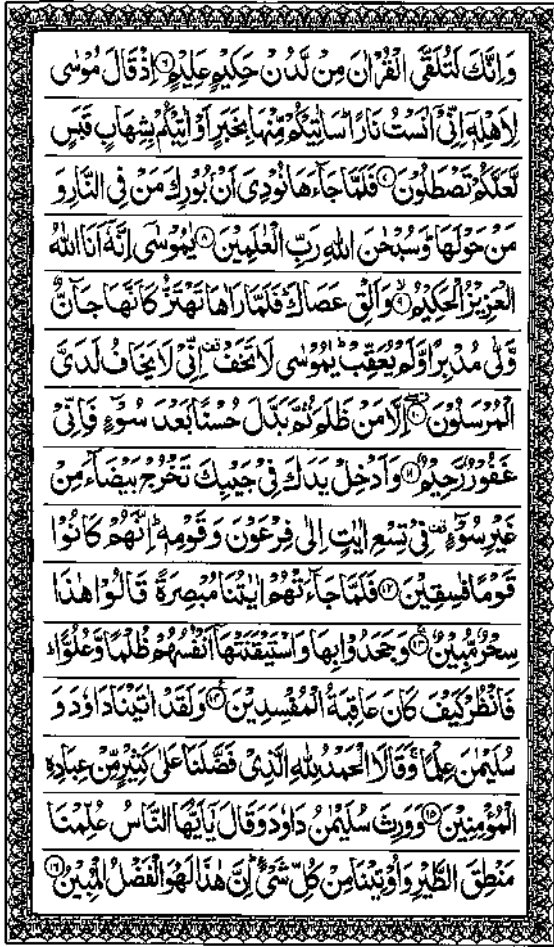 وَاِنَّكَ لَتُلَقَّى الْقُرْاٰنَ مِنْ لَّدُنْ حَكِيْمٍ عَلِيْمٍ ۝۶ اِذْ قَالَ مُوْسٰى
لِاَهْلِهٖۤ اِنِّيْۤ اٰنَسْتُ نَارًا ؕ سَاٰتِيْكُمْ مِّنْهَا بِخَبَرٍ اَوْ اٰتِيْكُمْ بِشِهَابٍ قَبَسٍ
لَّعَلَّكُمْ تَصْطَلُوْنَ ۝۷ فَلَمَّا جَآءَهَا نُوْدِيَ اَنْۢ بُوْرِكَ مَنْ فِي النَّارِ وَ
مَنْ حَوْلَهَا ؕ وَسُبْحٰنَ اللّٰهِ رَبِّ الْعٰلَمِيْنَ ۝۸ يٰمُوْسٰۤى اِنَّهٗۤ اَنَا اللّٰهُ
الْعَزِيْزُ الْحَكِيْمُ ۝۹ۙ وَاَلْقِ عَصَاكَ ؕ فَلَمَّا رَاٰهَا تَهْتَزُّ كَاَنَّهَا جَآنٌّ
وَّلّٰى مُدْبِرًا وَّلَمْ يُعَقِّبْ ؕ يٰمُوْسٰى لَا تَخَفْ ۫ اِنِّيْ لَا يَخَافُ لَدَيَّ
الْمُرْسَلُوْنَ ۝۱۰ اِلَّا مَنْ ظَلَمَ ثُمَّ بَدَّلَ حُسْنًۢا بَعْدَ سُوْٓءٍ فَاِنِّيْ
غَفُوْرٌ رَّحِيْمٌ ۝۱۱ وَاَدْخِلْ يَدَكَ فِيْ جَيْبِكَ تَخْرُجْ بَيْضَآءَ مِنْ
غَيْرِ سُوْٓءٍ ۫ فِيْ تِسْعِ اٰيٰتٍ اِلٰى فِرْعَوْنَ وَقَوْمِهٖ ؕ اِنَّهُمْ كَانُوْا
قَوْمًا فٰسِقِيْنَ ۝۱۲ فَلَمَّا جَآءَتْهُمْ اٰيٰتُنَا مُبْصِرَةً قَالُوْا هٰذَا
سِحْرٌ مُّبِيْنٌ ۝۱۳ۚ وَجَحَدُوْا بِهَا وَاسْتَيْقَنَتْهَاۤ اَنْفُسُهُمْ ظُلْمًا وَّعُلُوًّا ؕ
فَانْظُرْ كَيْفَ كَانَ عَاقِبَةُ الْمُفْسِدِيْنَ ۝۱۴ وَلَقَدْ اٰتَيْنَا دَاوٗدَ وَ
سُلَيْمٰنَ عِلْمًا ۚ وَقَالَا الْحَمْدُ لِلّٰهِ الَّذِيْ فَضَّلَنَا عَلٰى كَثِيْرٍ مِّنْ عِبَادِهِ
الْمُؤْمِنِيْنَ ۝۱۵ وَوَرِثَ سُلَيْمٰنُ دَاوٗدَ وَقَالَ يٰۤاَيُّهَا النَّاسُ عُلِّمْنَا
مَنْطِقَ الطَّيْرِ وَاُوْتِيْنَا مِنْ كُلِّ شَيْءٍ ؕ اِنَّ هٰذَا لَهُوَ الْفَضْلُ الْمُبِيْنُ ۝۱۶